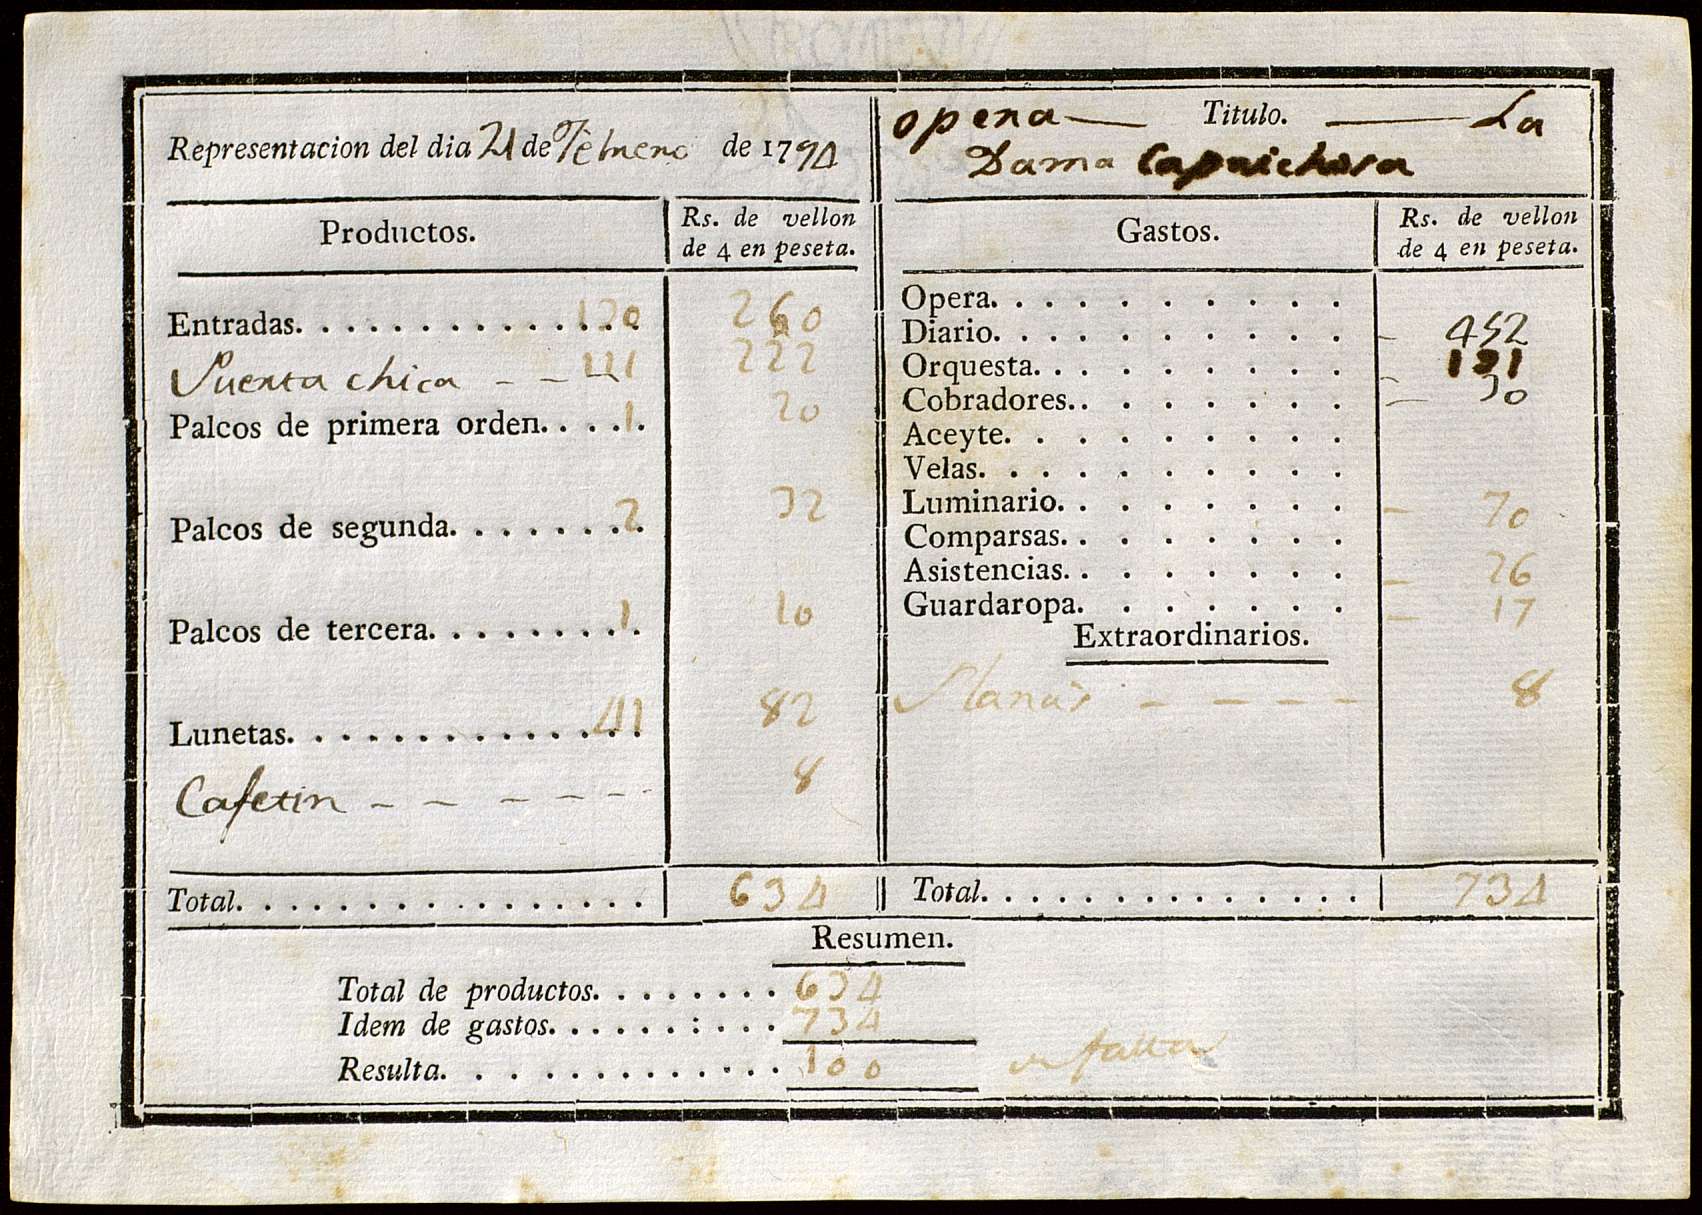 Representacion del dia 21 de Febrero de 1794
opera — Titulo. — La
Dama Caprichosa
Productos. Rs. de vellon
de 4 en peseta.
Entradas. . . . . . . . . . . . . . 130 260
Puerta chica - - 111 222
Palcos de primera orden. . . . . 1 20
Palcos de segunda. . . . . . . . 2 32
Palcos de tercera. . . . . . . . . 1 10
Lunetas. . . . . . . . . . . . . . 41 82
Cafetin - - - - - - 8
Total. . . . . . . . . . . . . . . . 634
Gastos. Rs. de vellon
de 4 en peseta.
Opera. . . . . . . . . .
Diario. . . . . . . . . . - 452
Orquesta. . . . . . . . . 131
Cobradores. . . . . . . . - 30
Aceyte. . . . . . . . .
Velas. . . . . . . . . .
Luminario. . . . . . . . - 70
Comparsas. . . . . . . .
Asistencias. . . . . . . . - 26
Guardaropa. . . . . . . - 17
Extraordinarios.
- - - - 8
Total. . . . . . . . . . . . . . . 734
Resumen.
Total de productos. . . . . . . . 634
Idem de gastos. . . . . . : . . . 734
Resulta. . . . . . . . . . . . 100 falta